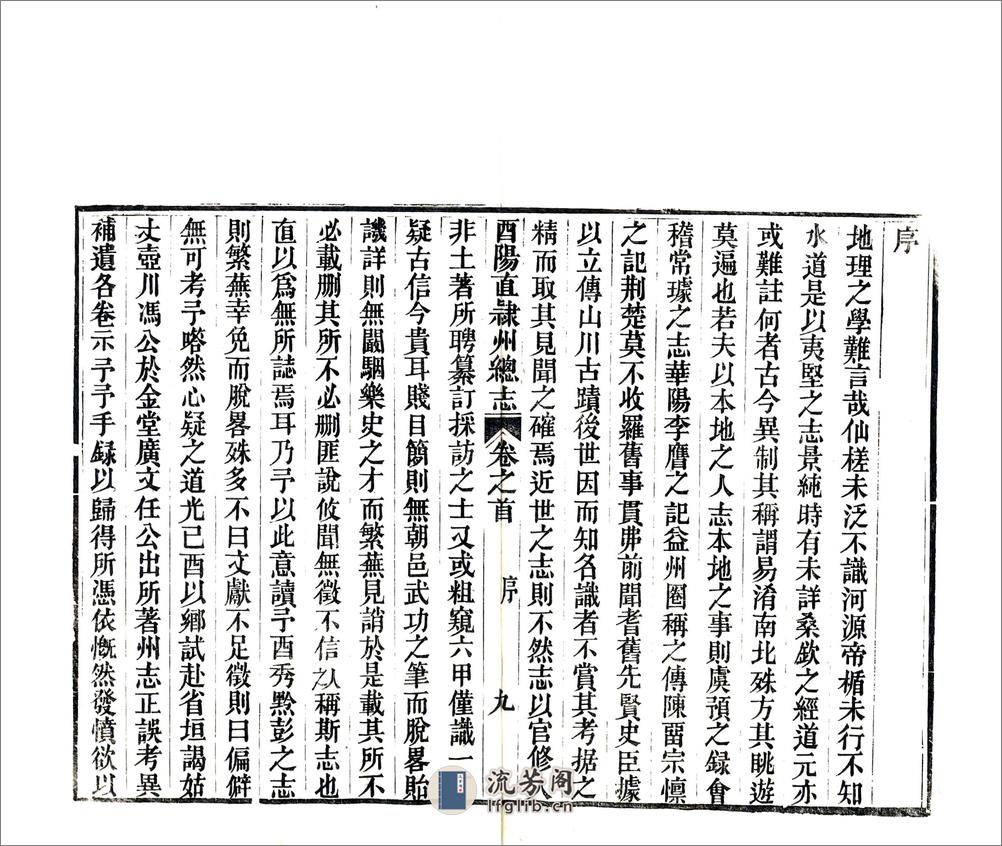 序
地理之學難言哉仙槎未泛不識河源帝楯未行不知
水道是以夷堅之志景純時有未詳桑欽之經道元亦
或難註何者古今異制其稱謂易淆南北殊方其眺遊
莫遍也若夫以本地之人志本地之事則虞預之録會
稽常璩之志華陽李膺之記益州圈稱之傳陳留宗懍
之記荆楚莫不收羅舊事貫弗前聞耆舊先賢史臣據
以立傳山川古蹟後世因而知名識者不賞其考据之
精而取其見聞之確焉近世之志則不然志以官修人
酉陽直隷州總志 卷之首 序 九
非土著所聘纂訂採訪之士又或粗窺六甲僅識一
疑古信今貴耳賤目簡則無朝邑武功之筆而脫畧貽
譏詳則無闞駰樂史之才而繁蕪見誚於是載其所不
必載删其所不必删匪說攸聞無徵不信以稱斯志也
直以爲無所誌焉耳乃予以此意讀予酉秀黔彭之志
則繁蕪幸免而脫畧殊多不曰文獻不足徵則曰偏僻
無可考予嗒然心疑之道光己酉以鄉試赴省垣謁姑
丈壺川馮公於金堂廣文任公出所著州志正誤考異
補遺各卷示予予手録以歸得所憑依慨然發憤欲以
流芳阁
lfglib.cn